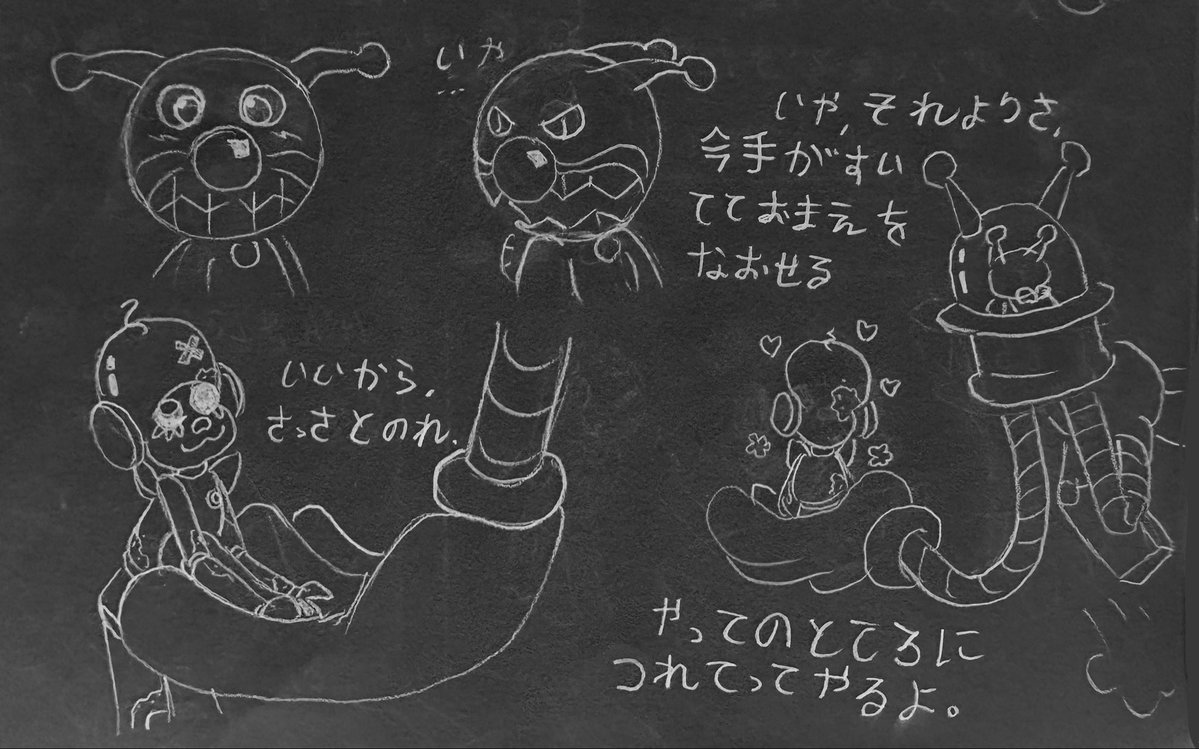 いや
…
いや,それよりさ,
今手がすい
てておまえを
なおせる
いいから,
さっさとのれ.
やってのところに
つれてってやるよ。